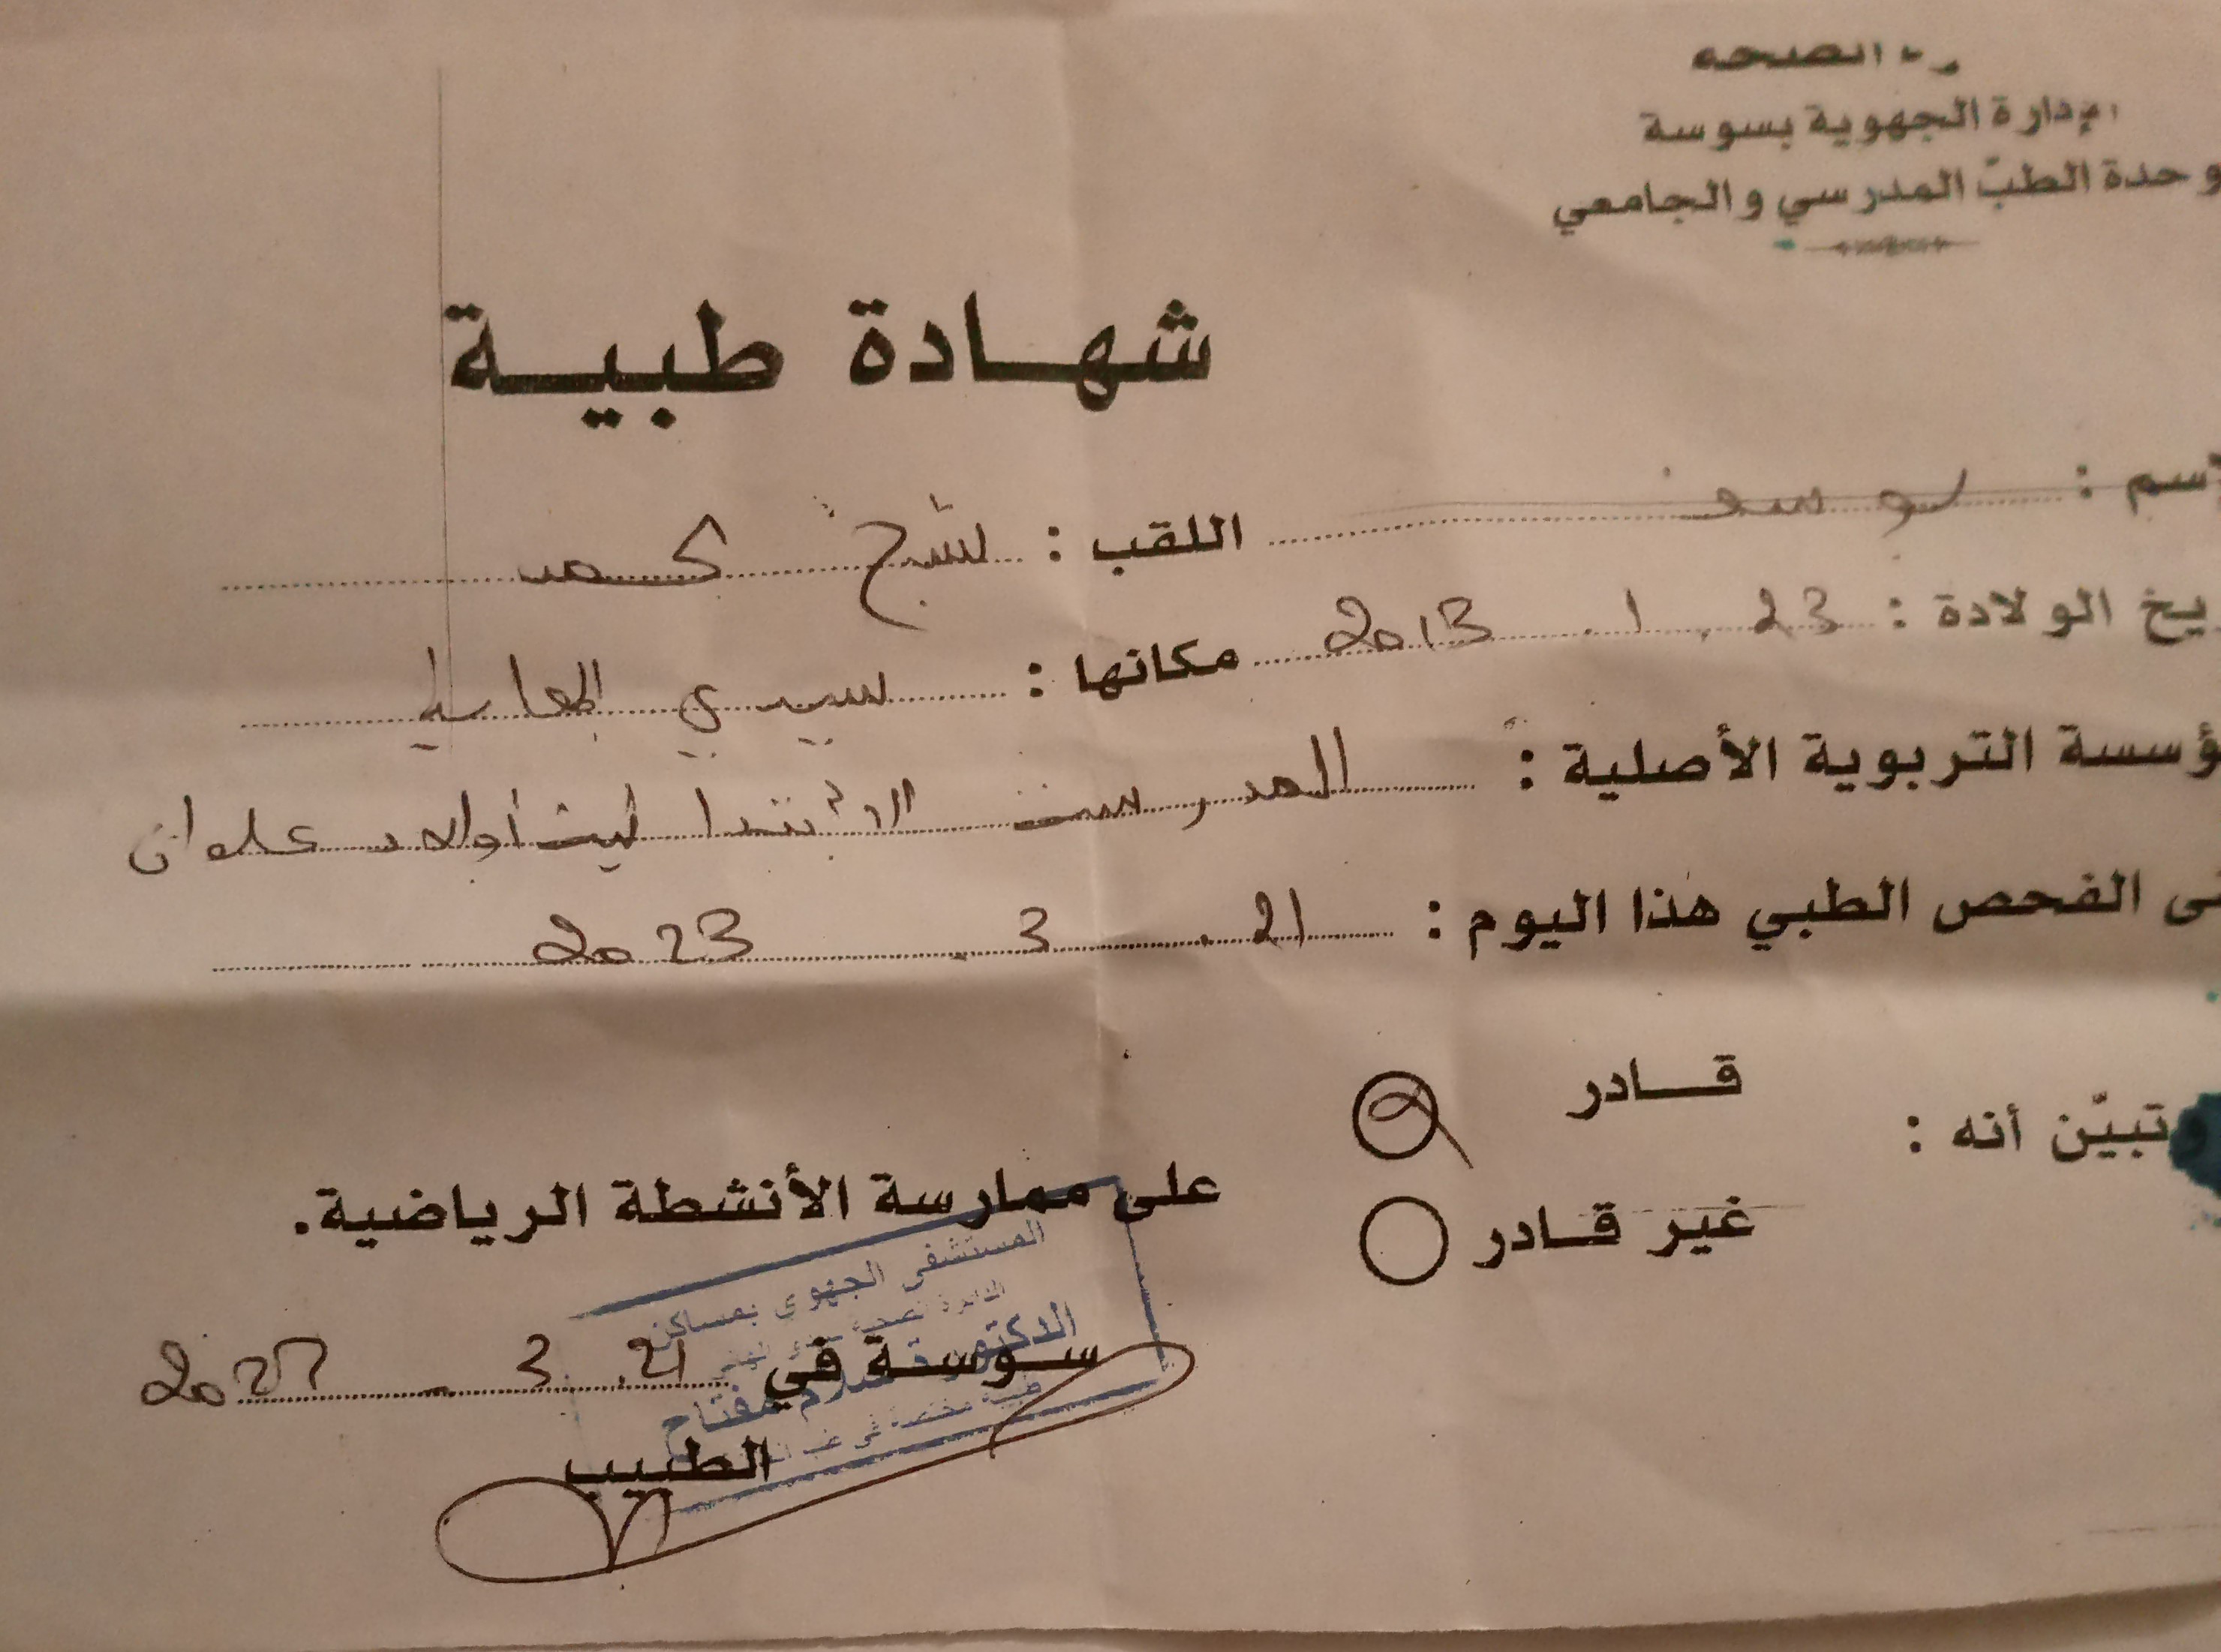 الصحة
الإدارة الجهوية بسوسة
وحدة الطبّ المدرسي والجامعي
شهادة طبية
إسم : يوسف اللقب :
يخ الولادة : 23 . 1 . 2013 مكانها : سيدي
ؤسسة التربوية الأصلية : المدرسة الابتدائية أولاد علوان
الفحص الطبي هذا اليوم : 21 . 3 . 2023
وتبيّن أنه :
قادر
غير قادر
على ممارسة الأنشطة الرياضية.
المستشفى الجهوي بمساكن
سوسة في 21 . 3 -
مفتاح
الطبيب